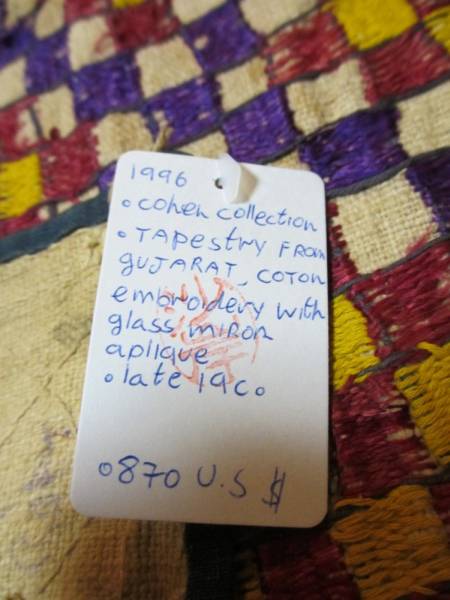 1996
• cohen collection
• TAPestry FROM
gUJARAT, COTON
embroidery with
glass miRoR
aplique
• late 19c.
•870 U.S $